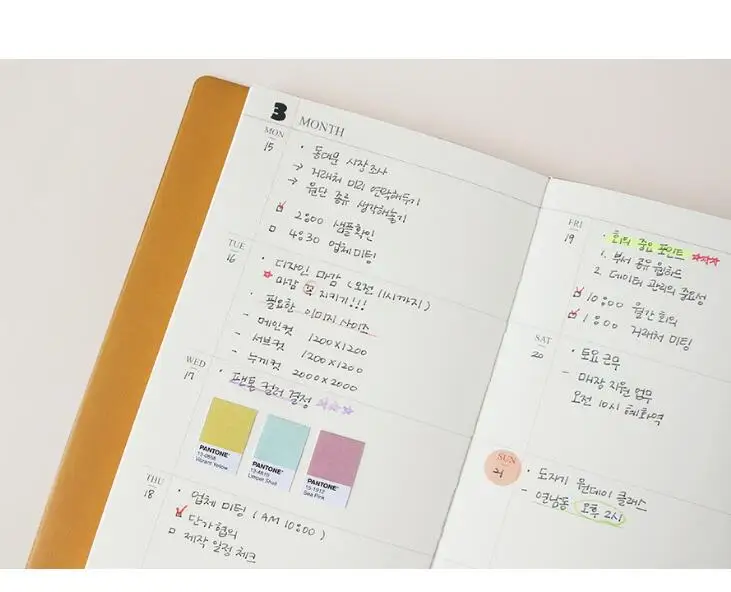 3 MONTH
MON
15
· 동대문 시장조사
→ 거래처 미리 연락해두기
→ 원단 종류 생각해놓기
2:00 샘플확인
4:30 업체미팅
TUE
16
· 디자인 마감 (오전 11시까지)
★ 마감 꼭 지키기!!!
· 필요한 이미지 사이즈
- 메인컷 1200×1200
- 서브컷 1200×1200
- 누끼컷 2000×2000
WED
17
· 팬톤 컬러 결정 ☆☆☆
PANTONE
Vibrant Yellow
PANTONE
Limpet Shell
PANTONE
15-1912
Sea Pink
THU
18
· 업체 미팅 (AM 10:00)
단가협의
제작 일정 체크
FRI
19
· 회의 중요 포인트 ☆☆☆
1. 부서 공유 웹하드
2. 데이터 관리의 중요성
10:00 월간 회의
1:00 거래처 미팅
SAT
20
· 토요 근무
- 매장 지원 업무
오전 10시 혜화역
SUN
21
· 도자기 원데이 클래스
- 연남동 오후 2시